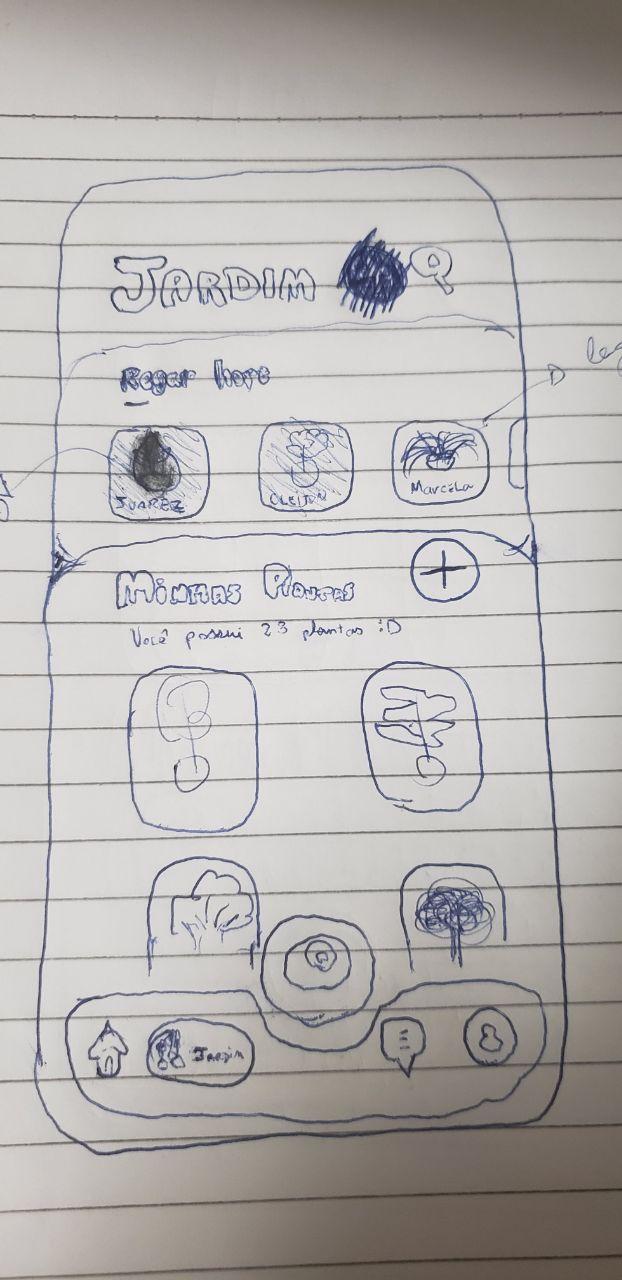 JARDIM
Regar hoje
JUAREZ
CLEITON
Marcela
MINHAS PLANTAS
Você possui 23 plantas :D
Jardim